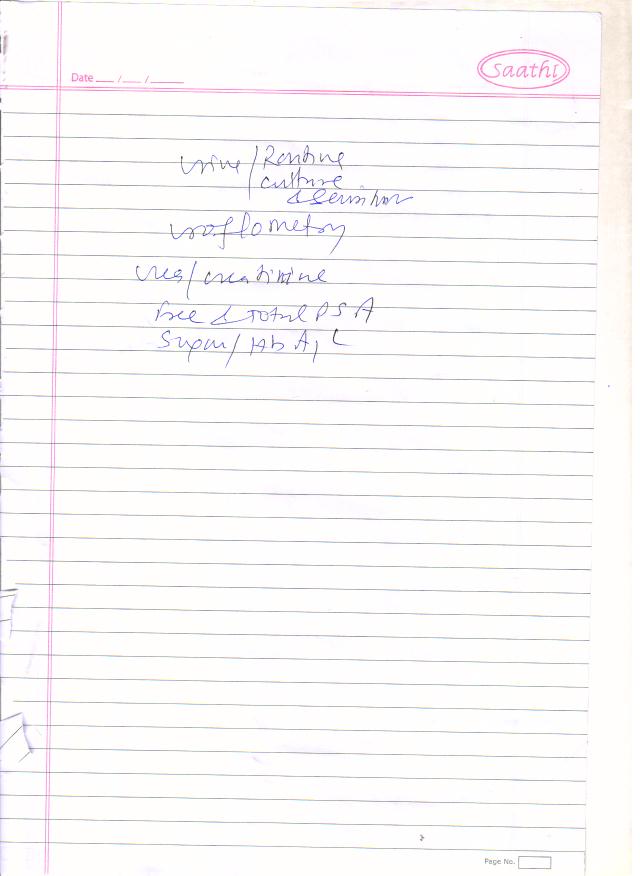 Saathi
Date ___ /___ /______
Urine / Routine
culture
& Sensitivity
Uroflometry
Urea / Creatinine
Free & Total PSA
Sugar / Hb A1C
Page No.